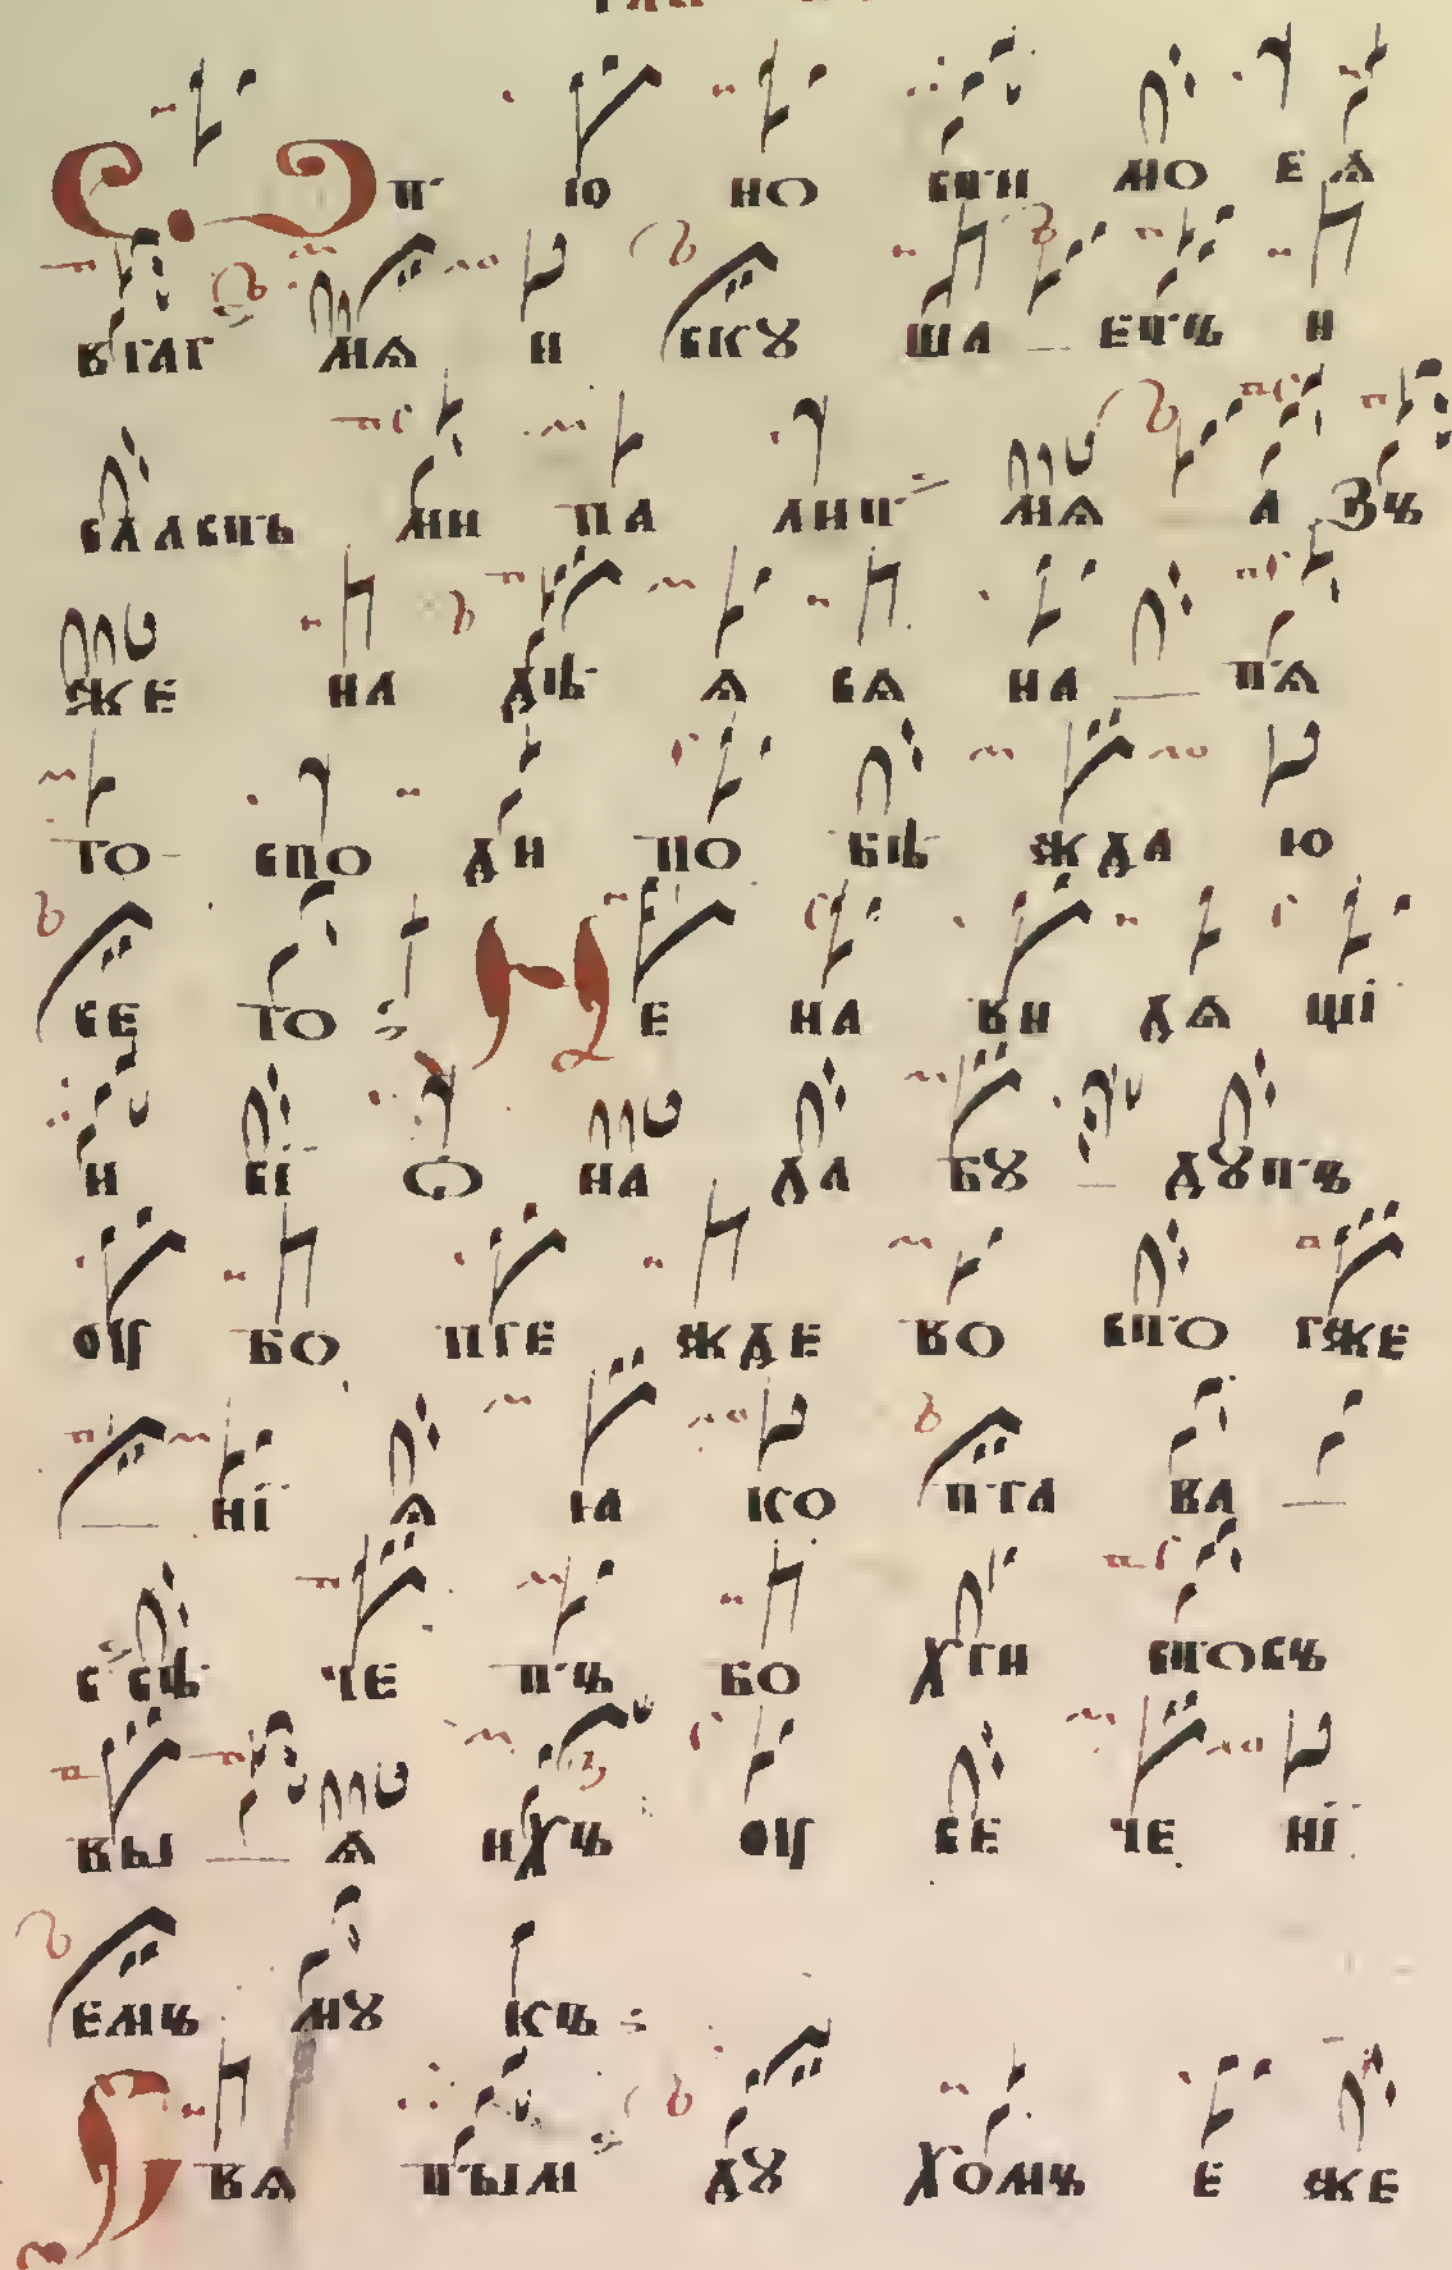 Ѿ т ю но сти мо е ѧ
враг мѧ и скꙋ ша етъ и
сласть ми па лит мѧ а зъ
же на дѣ ѧ сѧ на тѧ
го спо ди по бѣ жда ю
се го Не на ви дѧ щі
и сі ѡ на да бꙋ дꙋтъ
оу бо пре жде во сто рже
ні ѧ ꙗ ко тра ва
с сѣ че тъ бо хри стосъ
вы ѧ ихъ оу се че ні
емъ мꙋ къ
Свѧ тым дꙋ хомъ е же